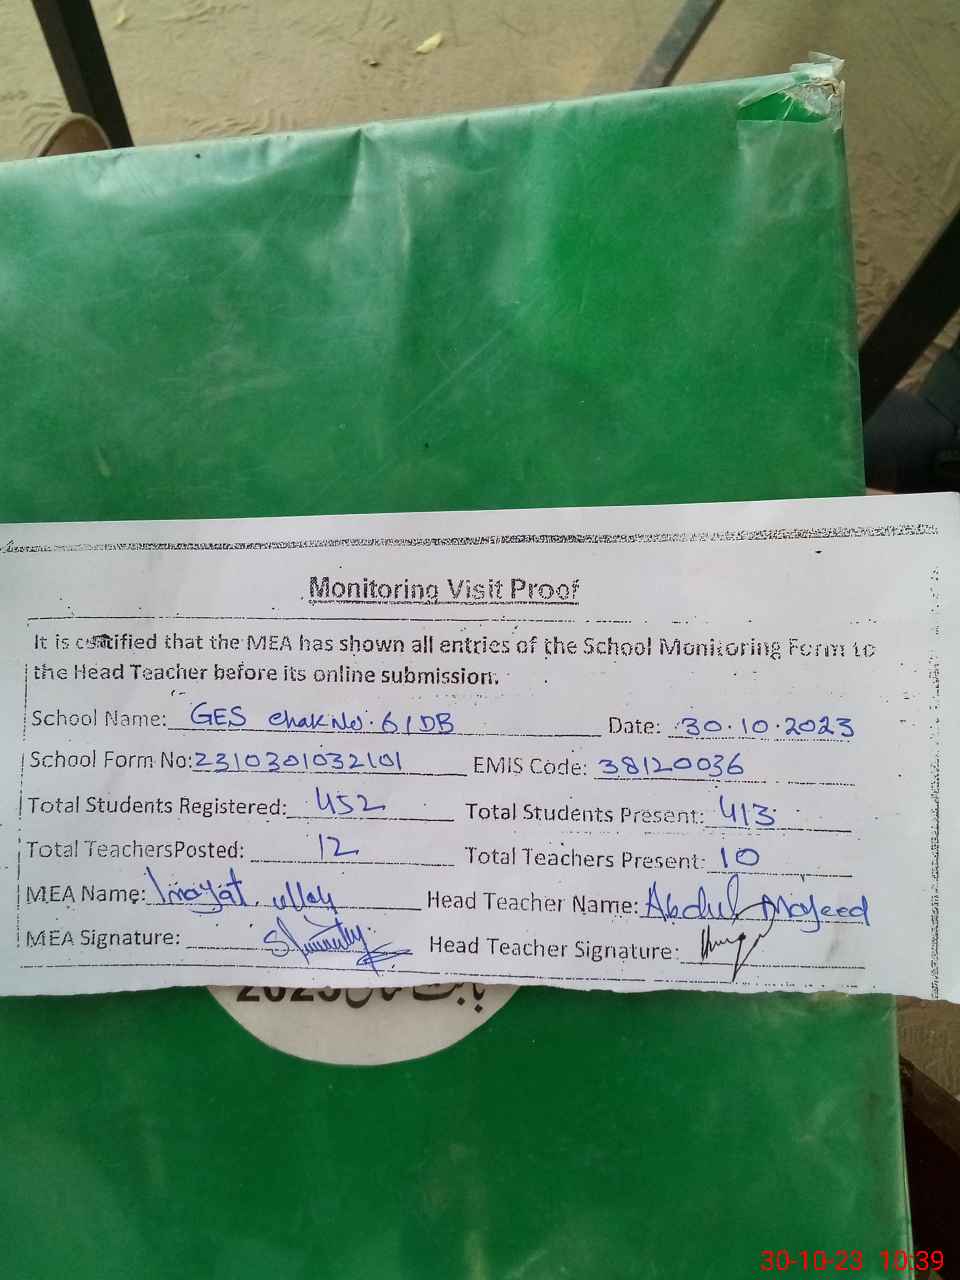 Monitoring Visit Proof
It is certified that the MEA has shown all entries of the School Monitoring Form to
the Head Teacher before its online submission.
School Name: GES Chak No. 61DB Date: 30.10.2023
School Form No: 2310301032101 EMIS Code: 38120036
Total Students Registered: 452 Total Students Present: 413
Total TeachersPosted: 12 Total Teachers Present: 10
MEA Name: Inayat ullah Head Teacher Name: Abdul Majeed
MEA Signature: Head Teacher Signature:
بابت سال 2023
30-10-23 10:39